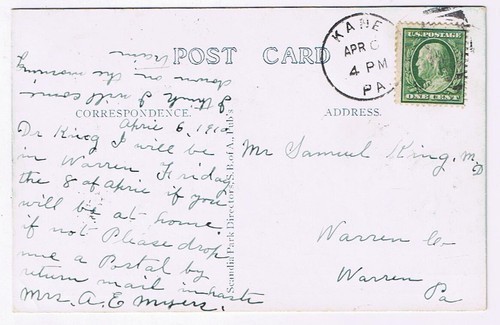 POST CARD
KANE
APR 6
4 PM
PA.
U.S. POSTAGE
ONE CENT
CORRESPONDENCE.
ADDRESS.
April 6, 1910
Dr King I will be
in Warren Friday
the 8 of Aprie if you
will be at home.
if not Please drop
me a Postal by
return mail in haste
Mrs. A. E Myers.
I think I will come
down on the morning
train
Scandia Park Directors, S. B. of A., Pub's
Mr Samuel King, M.
D
Warren Co
Warren
Pa